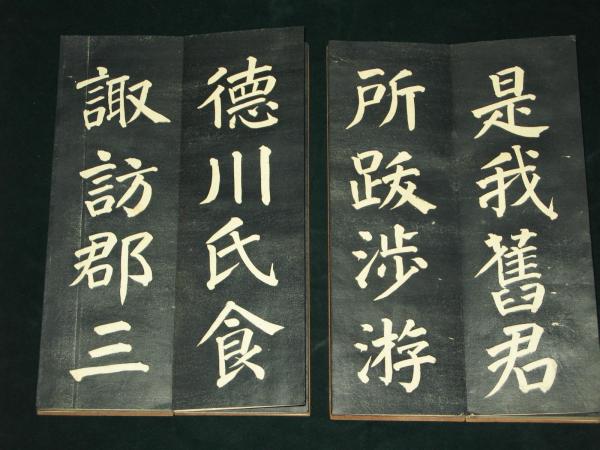 是我舊君
所跋渉游
德川氏食
諏訪郡三